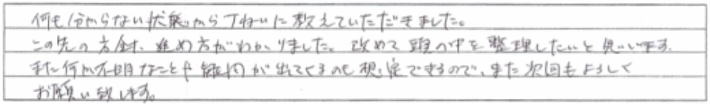 何も分からない状態から丁ねいに教えていただきました。
この先の方針、進め方がわかりました。改めて頭の中を整理したいと思います。
また何か不明なことや疑問が出てくるのも想定できるので、また次回もよろしく
お願い致します。